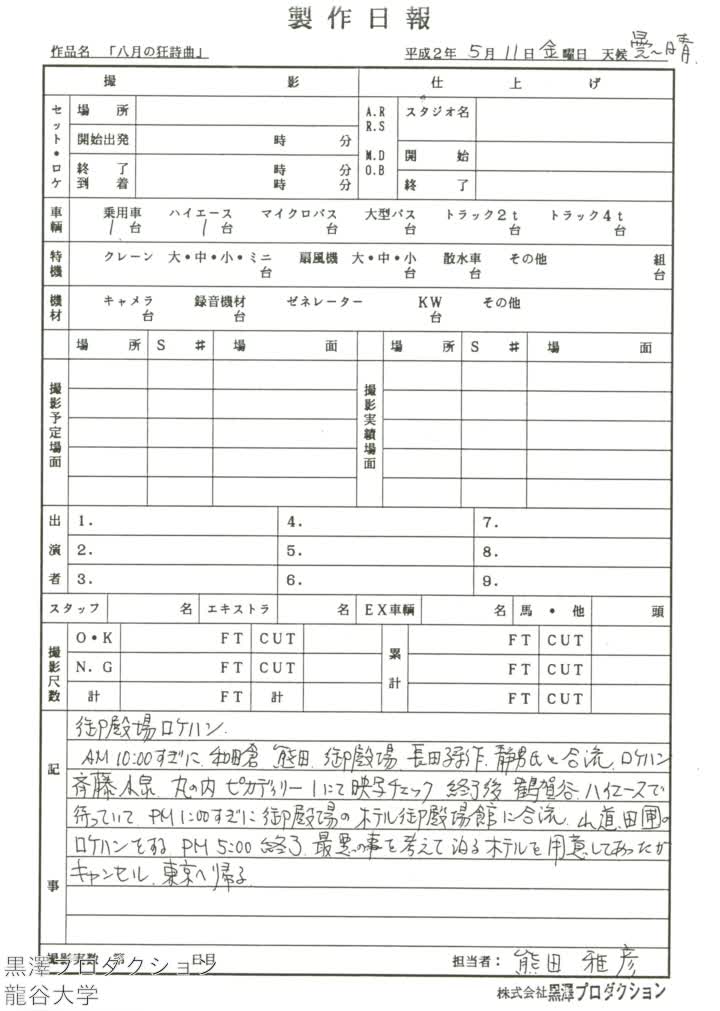 製作日報
作品名 「八月の狂詩曲」 平成2年 5月 11日 金曜日 天候 曇〜晴
撮影 仕上げ
セット・ロケ 場所 A.R R.S M.D O.B スタジオ名
開始出発 時 分 開始
終了 時 分 終了
到着 時 分
車輌 乗用車 ハイエース マイクロバス 大型バス トラック2t トラック4t
1台 1台 台 台 台 台
特機 クレーン 大・中・小・ミニ 扇風機 大・中・小 散水車 その他 組
台 台 台 台
機材 キャメラ 録音機材 ゼネレーター KW その他
台 台 台
場所 S # 場面 場所 S # 場面
撮影予定場面 撮影実績場面
出演者
1. 4. 7.
2. 5. 8.
3. 6. 9.
スタッフ 名 エキストラ 名 EX車輌 名 馬・他 頭
撮影尺数 O・K FT CUT 累計 FT CUT
N.G FT CUT FT CUT
計 FT 計 FT CUT
記事
御殿場ロケハン.
AM 10:00すぎに 和田倉 熊田. 御殿場 長田孫作. 静男氏と合流. ロケハン
斉藤 泉 丸の内 ピカデリー1にて映写チェック 終了後 鶴賀谷. ハイエースで
待っていて PM 1:00すぎに御殿場のホテル御殿場館に合流. 山道. 田圃の
ロケハンをする. PM 5:00 終了. 最悪の事を考えて泊るホテルを用意してあったが
キャンセル. 東京へ帰る.
撮影実数 第 日目 担当者: 熊田 雅彦
株式会社黒澤プロダクション
黒澤プロダクション
龍谷大学